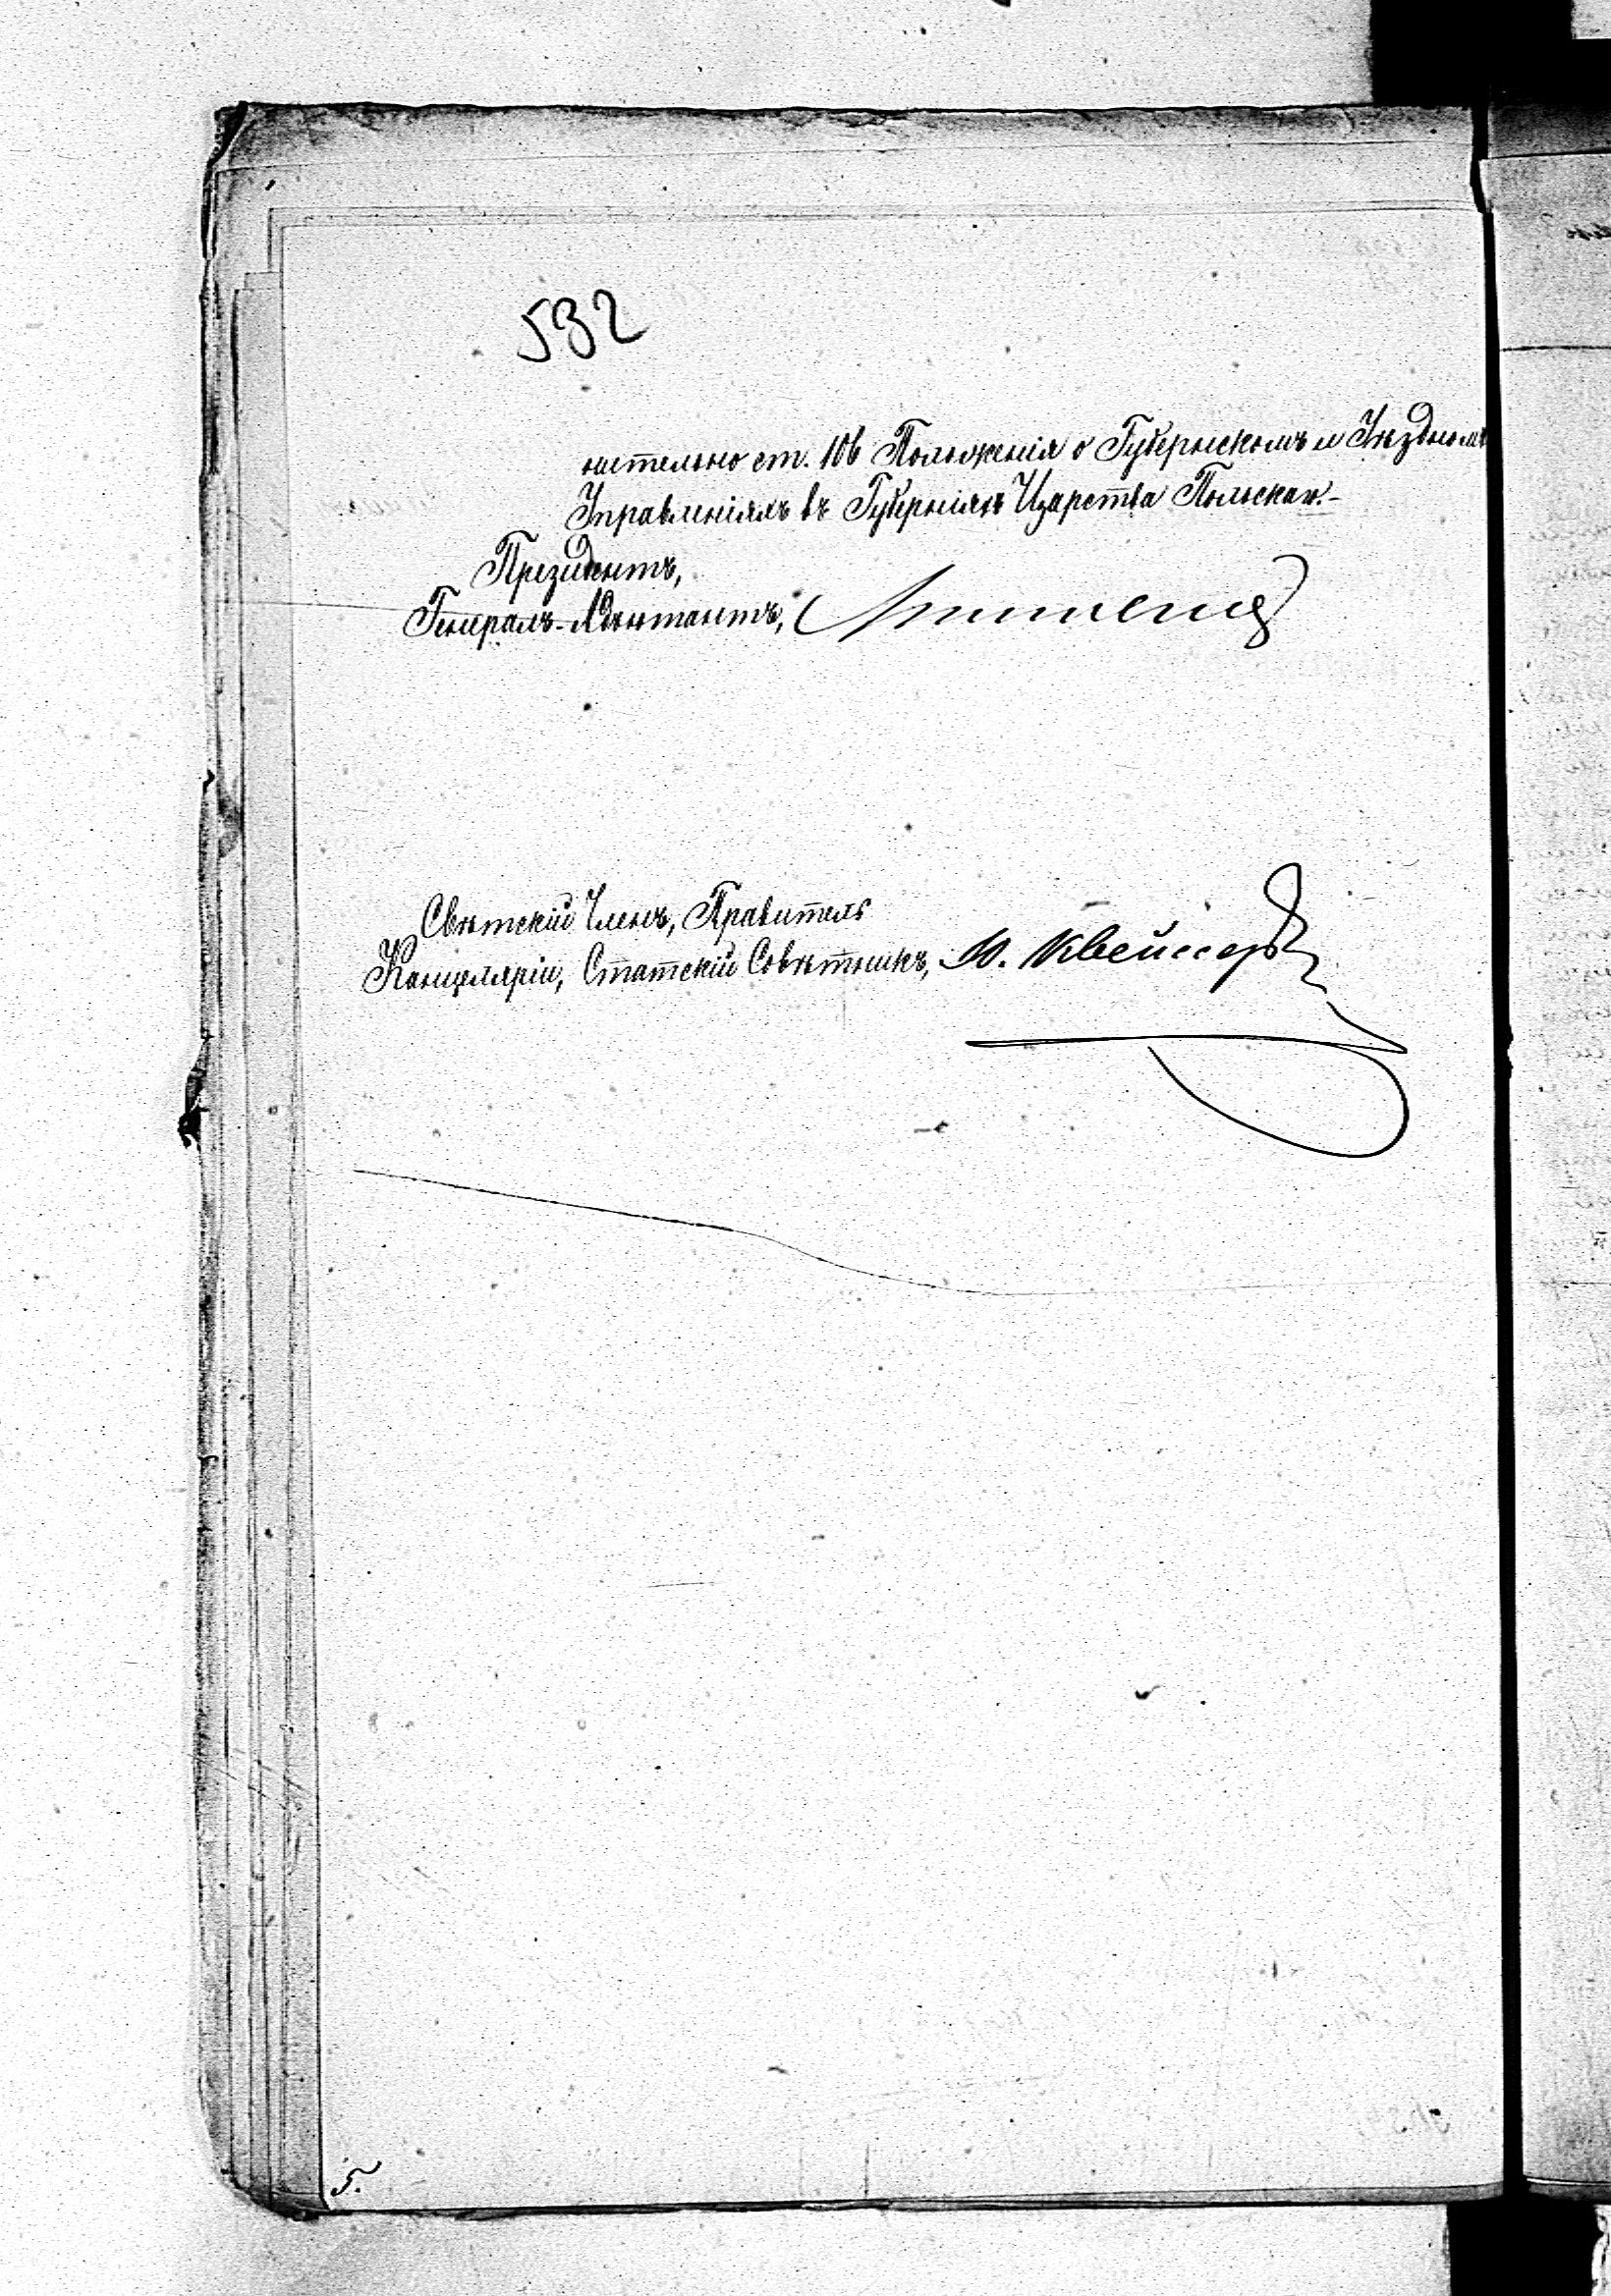 532
нительно ст. 106 Положенія о Губернскомъ и Уѣздномъ
Управленіяхъ въ Губерніяхъ Царства Польскаго.-
Президентъ,
Генералъ-Адъютантъ,
Свѣтскій Членъ, Правитель
Канцеляріи, Статскій Совѣтникъ, Ю.
5.